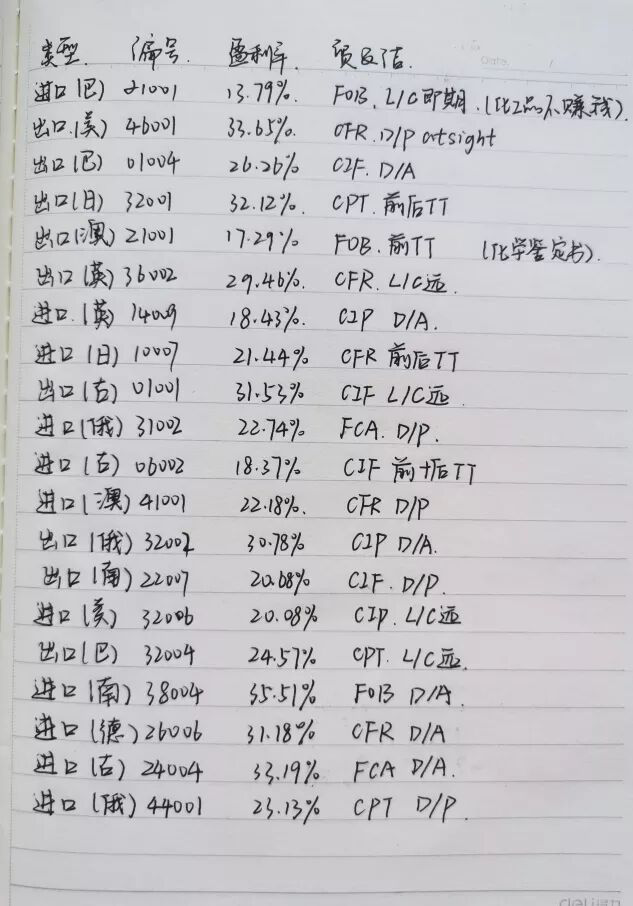 类型. 编号. 盈利率. 贸及结.
进口(巴) 21001 13.79%. FOB. L/C即期. (化工品不赚钱).
出口.(美) 46001 33.65%. CFR. D/P atsight
出口(巴) 01004 26.26% CIF. D/A
出口(日) 32001 32.12%. CPT. 前后TT
出口(澳) 21001 17.29% FOB. 前TT (化学鉴定书).
出口(英) 36002 29.46% CFR. L/C远.
进口.(英) 14009 18.43%. CIP D/A.
进口(日) 10007 21.44% CFR 前后TT
出口(古) 01001 31.53% CIF L/C远.
进口(俄) 31002 22.74% FCA. D/P.
进口(古) 06002 18.37% CIF 前+后TT
进口(澳) 41001 22.18%. CFR D/P
出口(俄) 32002 30.78% CIP D/A.
出口(南) 22007 20.68% CIF. D/P.
进口(美) 32006 20.08% CIP. L/C远
出口(巴) 32004 24.57% CPT. L/C远.
进口(南) 38004 35.51% FOB D/A.
进口(德) 26006 31.18% CFR D/A
进口(古) 24004 33.19% FCA D/A.
进口(俄) 44001 23.13% CPT D/P.